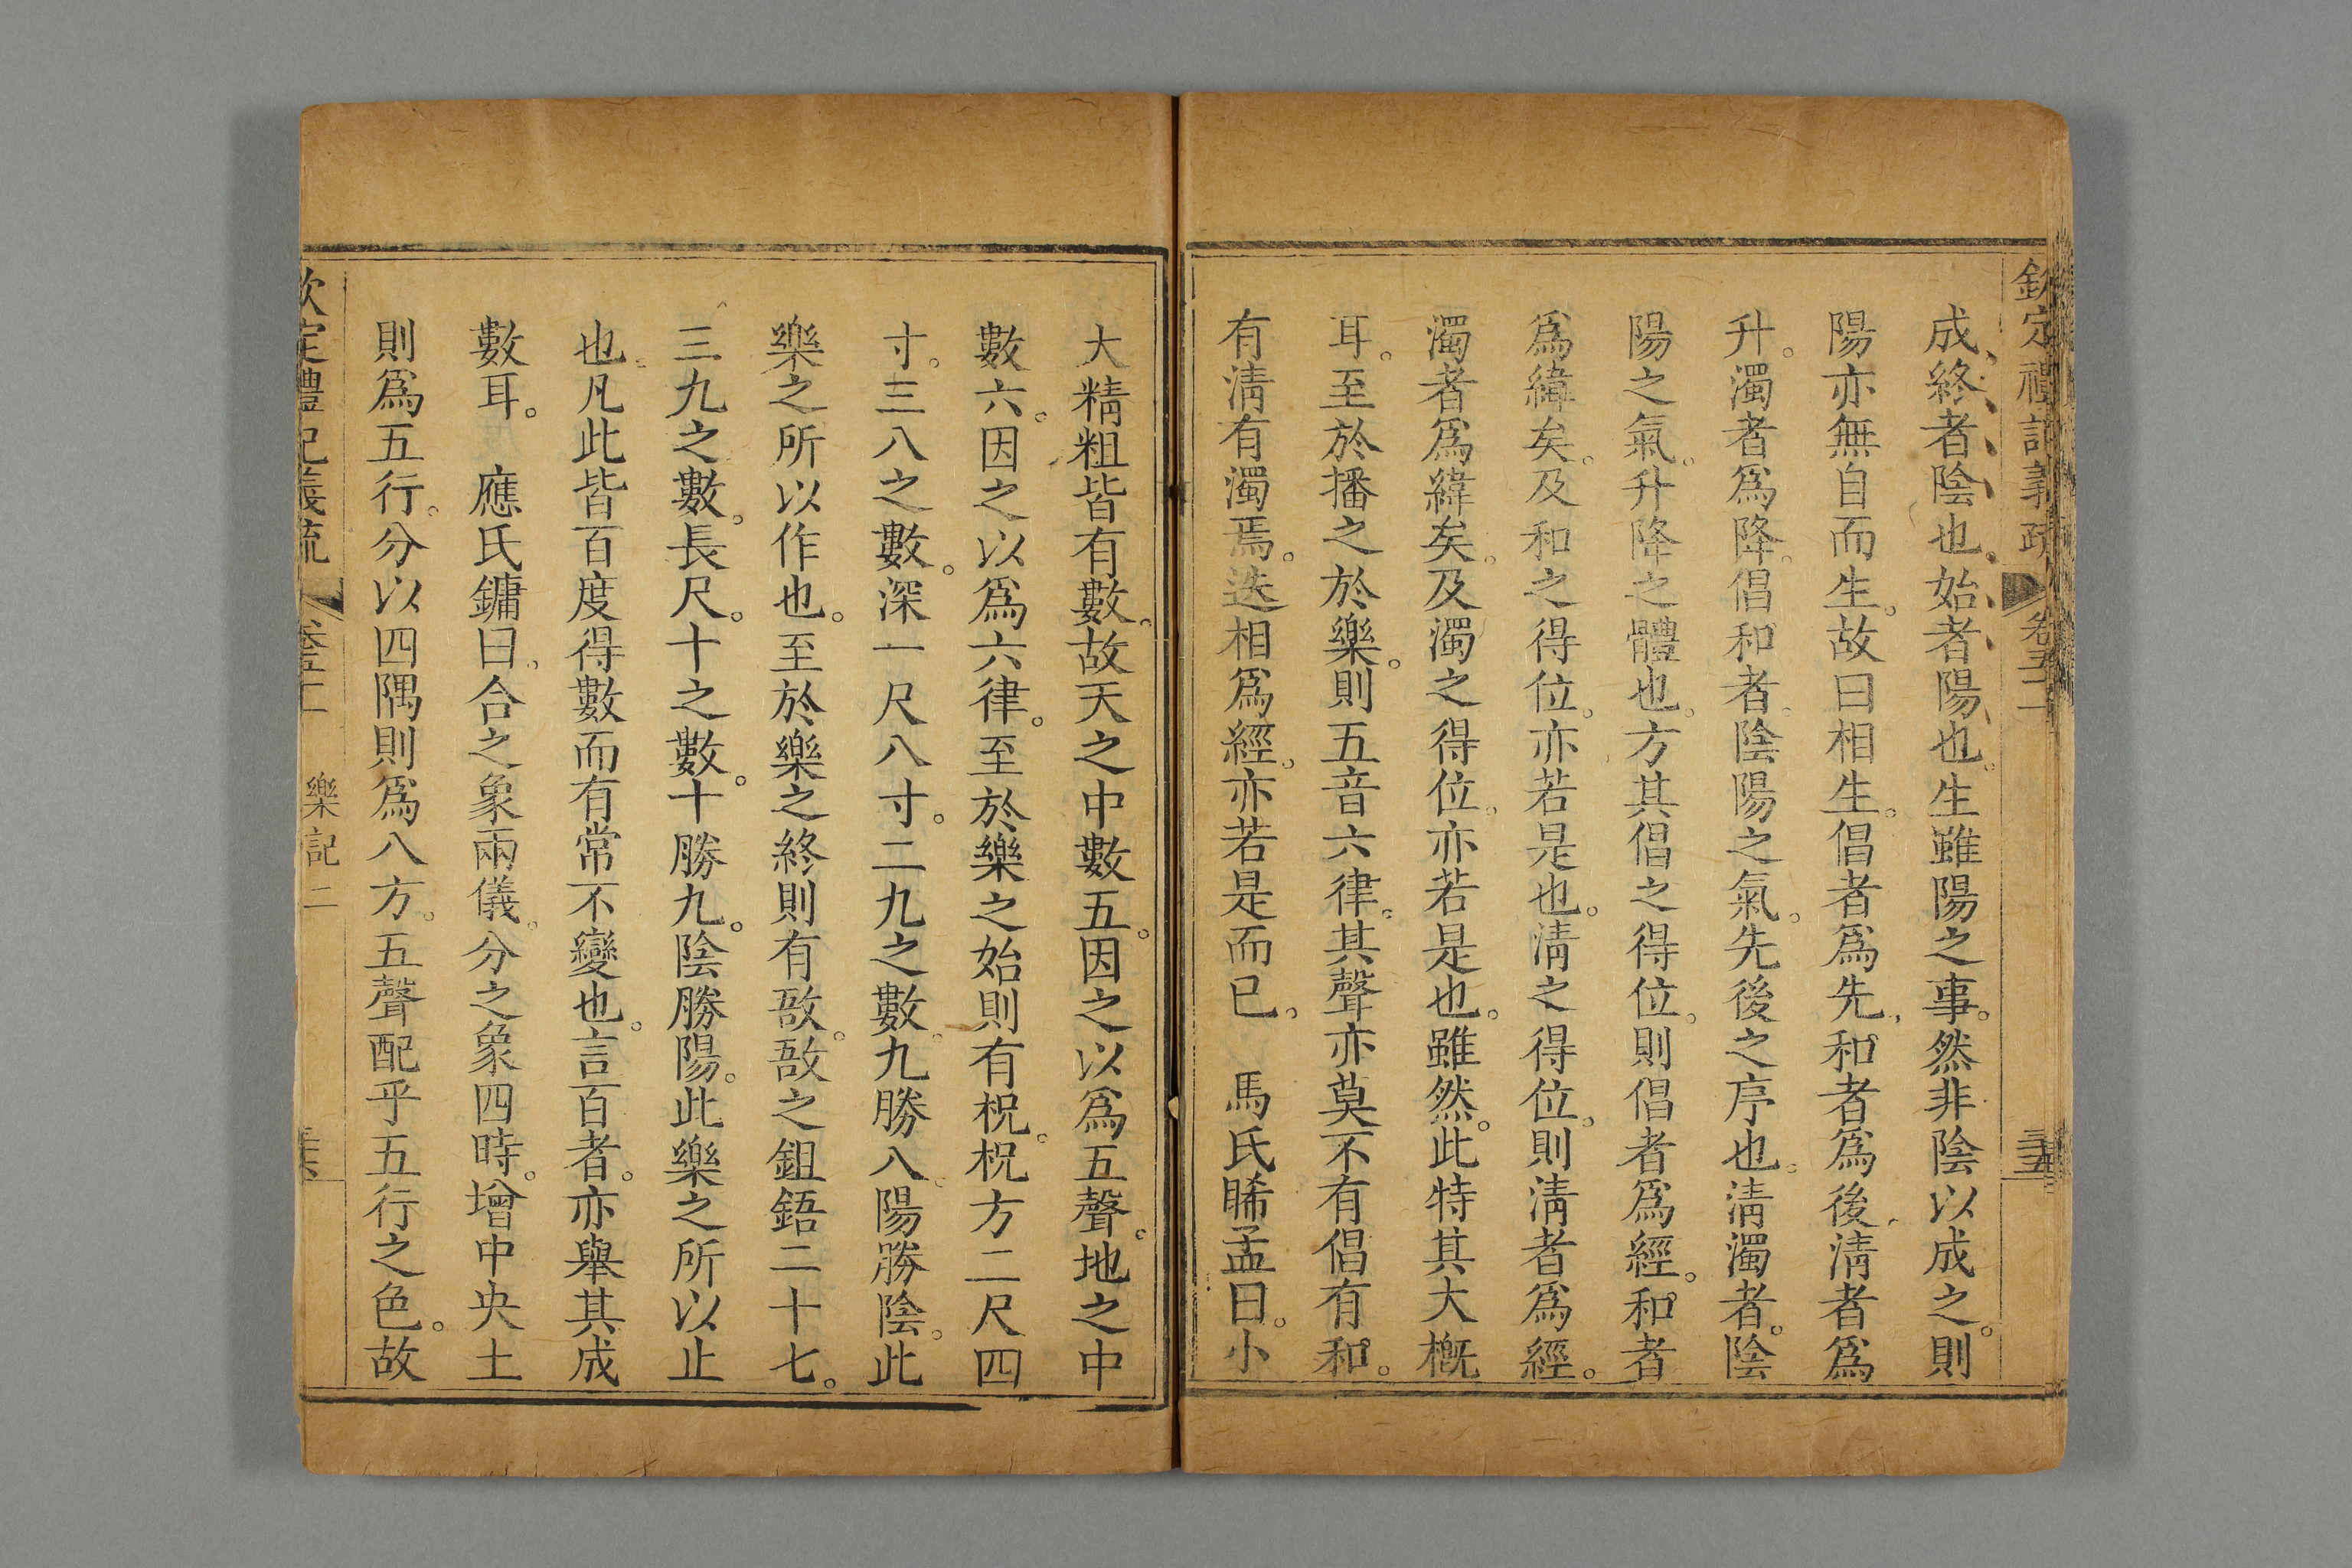 欽定禮記義疏 卷五十 三十五
成終者陰也始者陽也。生雖陽之事。然非陰以成之。則
陽亦無自而生。故曰相生。倡者爲先。和者爲後。清者爲
升。濁者爲降。倡和者。陰陽之氣。先後之序也。清濁者。陰
陽之氣。升降之體也。方其倡之得位。則倡者爲經。和者
爲緯矣。及和之得位。亦若是也。清之得位。則清者爲經。
濁者爲緯矣。及濁之得位。亦若是也。雖然。此特其大槪
耳。至於播之於樂。則五音六律。其聲亦莫不有倡有和。
有清有濁焉。迭相爲經。亦若是而已。 馬氏睎孟曰。小
大精粗皆有數。故天之中數五。因之以爲五聲。地之中
數六。因之以爲六律。至於樂之始則有柷。柷方二尺四
寸。三八之數。深一尺八寸。二九之數。九勝八。陽勝陰。此
樂之所以作也。至於樂之終則有敔。敔之鉏鋙二十七。
三九之數。長尺。十之數。十勝九。陰勝陽。此樂之所以止
也。凡此皆百度得數而有常不變也。言百者。亦舉其成
數耳。 應氏鏞曰。合之象兩儀。分之象四時。增中央土
則爲五行。分以四隅則爲八方。五聲配乎五行之色。故
欽定禮記義疏 樂記二